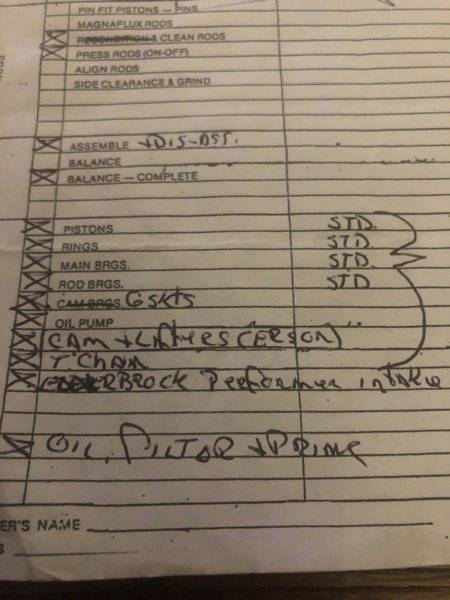 PIN FIT PISTONS — PINS
MAGNAFLUX RODS
RECONDITION & CLEAN RODS
PRESS RODS (ON-OFF)
ALIGN RODS
SIDE CLEARANCE & GRIND
ASSEMBLE + DIS-ASS.
BALANCE
BALANCE — COMPLETE
PISTONS STD.
RINGS STD
MAIN BRGS. STD.
ROD BRGS. STD
CAM BRGS. GSKTS
OIL PUMP
CAM + LIFTERS (ERSON)
T. CHAIN
EDELBROCK Performer intake
OIL, FILTOR + PRIME
ER'S NAME
S